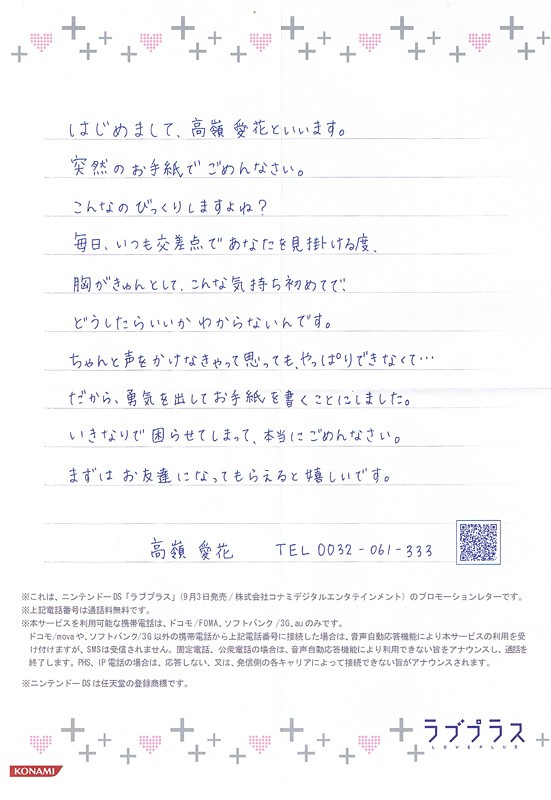 はじめまして、高嶺 愛花といいます。
突然のお手紙でごめんなさい。
こんなのびっくりしますよね？
毎日、いつも交差点であなたを見掛ける度、
胸がきゅんとして、こんな気持ち初めてで、
どうしたらいいかわからないんです。
ちゃんと声をかけなきゃって思っても、やっぱりできなくて…
だから、勇気を出してお手紙を書くことにしました。
いきなりで困らせてしまって、本当にごめんなさい。
まずはお友達になってもらえると嬉しいです。
高嶺 愛花 TEL 0032-061-333
※これは、ニンテンドーDS「ラブプラス」(9月3日発売/株式会社コナミデジタルエンタテインメント)のプロモーションレターです。
※上記電話番号は通話料無料です。
※本サービスを利用可能な携帯電話は、ドコモ/FOMA、ソフトバンク/3G、auのみです。
ドコモ/movaや、ソフトバンク/3G以外の携帯電話から上記電話番号に接続した場合は、音声自動応答機能により本サービスの利用を受
け付けますが、SMSは受信されません。固定電話、公衆電話の場合は、音声自動応答機能により利用できない旨をアナウンスし、通話を
終了します。PHS、IP電話の場合は、応答しない、又は、発信側の各キャリアによって接続できない旨がアナウンスされます。
※ニンテンドーDSは任天堂の登録商標です。
ラブプラス
LOVEPLUS
KONAMI